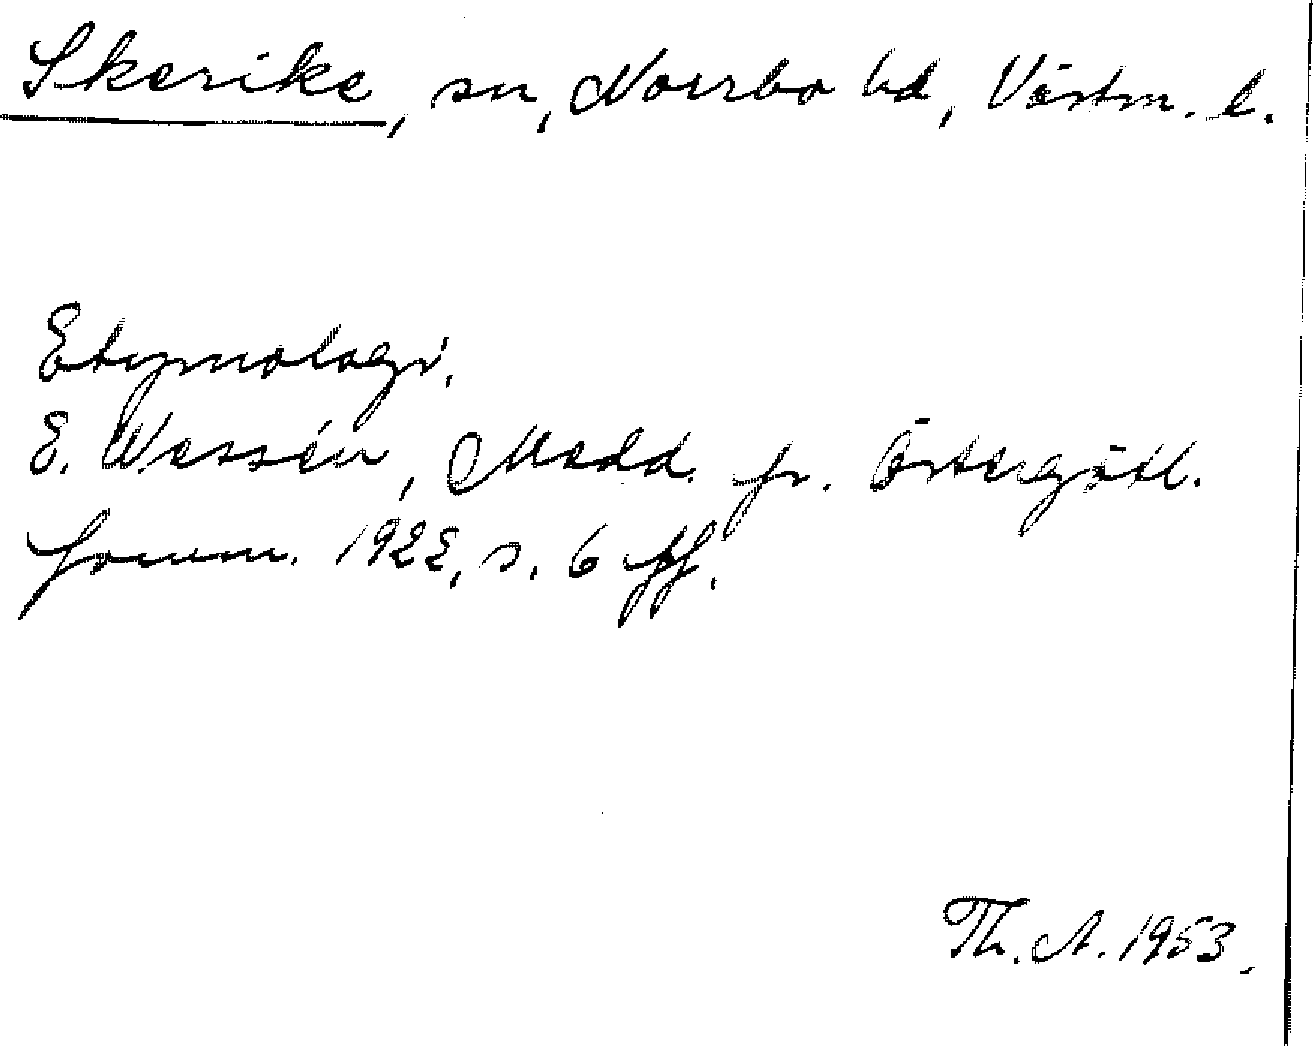 Skerike, sn, Norrbo hd, Västm. l.
Etymologi.
E. Wessén, Medd. fr. Östergötl.
fornm. 1922, s. 6 ff.
Th. A. 1953.